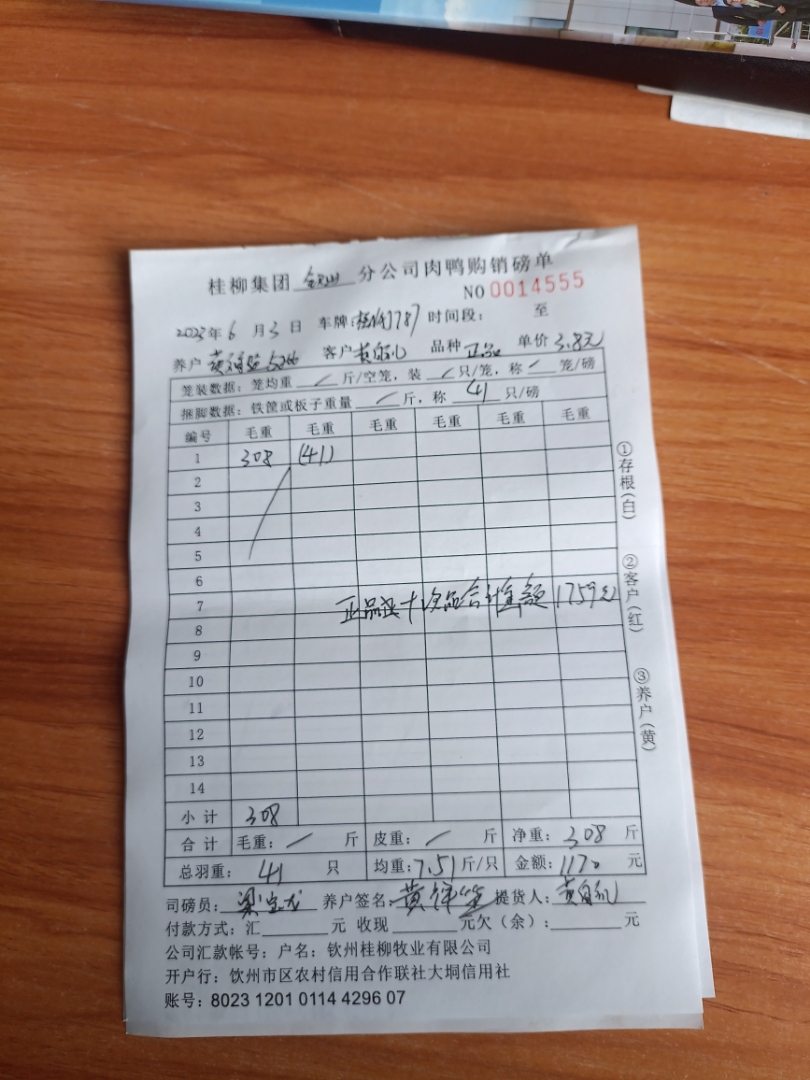 桂柳集团 分公司肉鸭购销磅单
NO 0014555
2023年6月3日 车牌: 787 时间段: 至
养户 客户 黄自礼 品种 正品 单价 3.8元
笼装数据: 笼均重 / 斤/空笼, 装 / 只/笼, 称 / 笼/磅
捆脚数据: 铁筐或板子重量 / 斤, 称 41 只/磅
编号 毛重 毛重 毛重 毛重 毛重 毛重
1 308 (41)
2
3
4
5
6
7
正品 十次品合计金额 1759元
8
9
10
11
12
13
14
小计 308
合计 毛重: / 斤 皮重: / 斤 净重: 308 斤
总羽重: 41 只 均重: 7.51 斤/只 金额: 1170 元
司磅员: 梁宝龙 养户签名: 黄 提货人: 黄自礼
付款方式: 汇 元 收现 元欠(余): 元
公司汇款帐号: 户名: 钦州桂柳牧业有限公司
开户行: 钦州市区农村信用合作联社大垌信用社
账号: 8023 1201 0114 4296 07
①存根(白)
②客户(红)
③养户(黄)